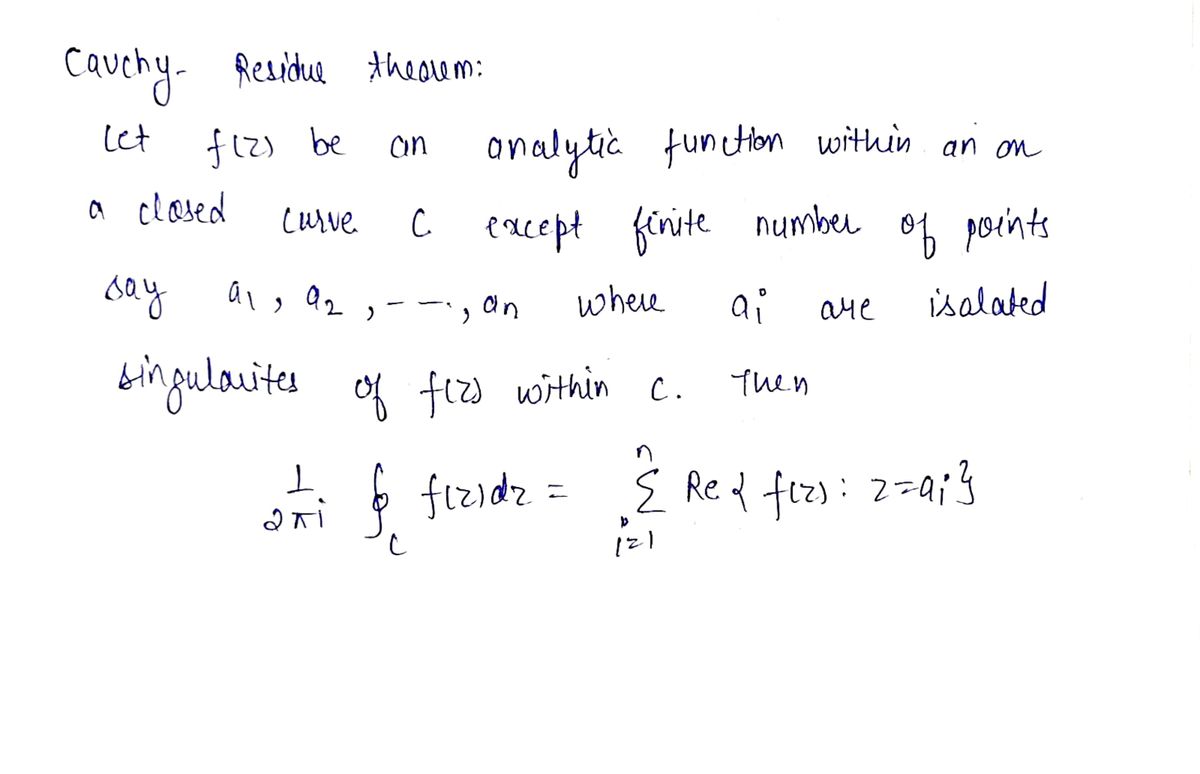 Cauchy- Residue theorem:
Let f(z) be an analytic function within an on
a closed curve C except finite number of points
say a₁, a₂, - - ·, an where aᵢ are isalated
singularites of f(z) within C. Then
1/2πi ∮_C f(z)dz = ∑_{i=1}^{n} Re{f(z): z=aᵢ}